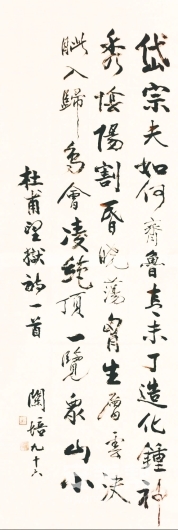 岱宗夫如何齊魯青未了造化鍾神
秀陰陽割昏曉蕩胷生層雲決
眦入歸鳥會凌絶頂一覽衆山小
杜甫望嶽詩一首
培九十六